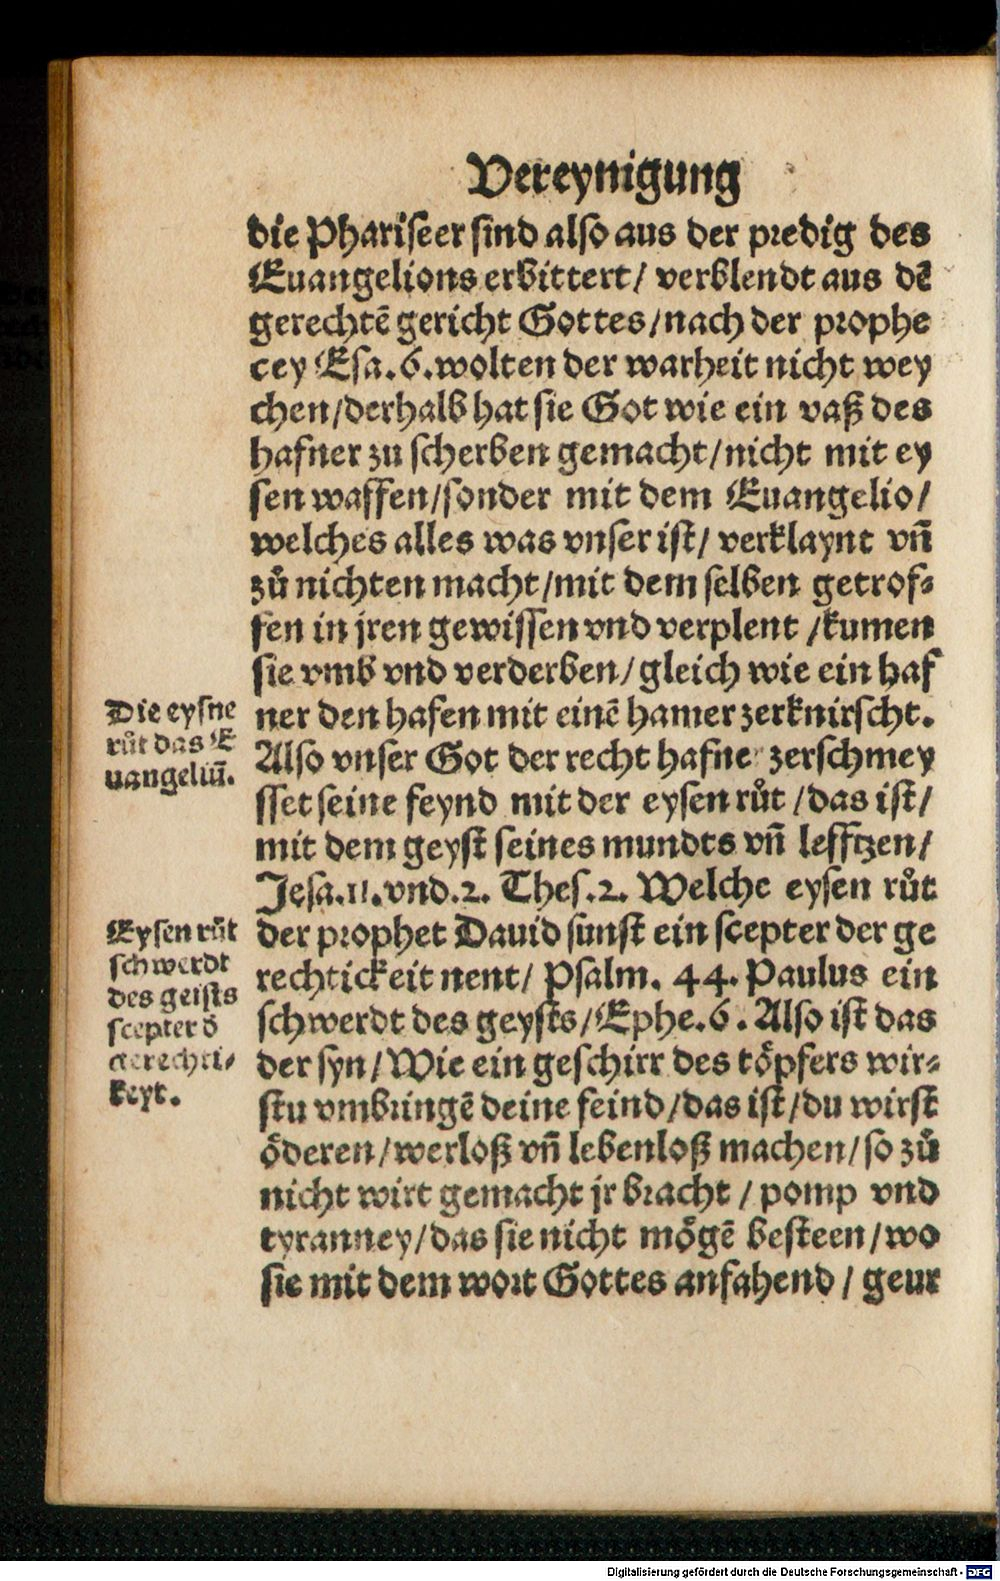 Vereynigung
die Phariseer sind also aus der predig des
Euangelions erbittert/ verblendt aus dē
gerechtē gericht Gottes/nach der prophe
cey Esa.6.wolten der warheit nicht wey
chen/derhalb hat sie Got wie ein vaß des
hafner zu scherben gemacht/nicht mit ey
sen waffen/sonder mit dem Euangelio/
welches alles was vnser ist/ verklaynt vñ
zů nichten macht/mit dem selben getrof-
fen in jren gewissen vnd verplent /kumen
sie vmb vnd verderben/gleich wie ein haf
ner den hafen mit einē hamer zerknirscht.
Also vnser Got der recht hafne zerschmey
sset seine feynd mit der eysen růt /das ist/
mit dem geyst seines mundts vñ lefftzen/
Jesa.11.vnd.2. Thes.2. Welche eysen růt
der prophet Dauid sunst ein scepter der ge
rechtickeit nent/ Psalm. 44. Paulus ein
schwerdt des geysts/Ephe.6. Also ist das
der syn/Wie ein geschirr des töpfers wir-
stu vmbringē deine feind/das ist/du wirst
öderen/werloß vñ lebenloß machen/so zů
nicht wirt gemacht jr bracht / pomp vnd
tyranney/das sie nicht mögē besteen/wo
sie mit dem wort Gottes anfahend / geur
Die eysne
růt das E
uangeliū.
Eysen růt
schwerdt
des geists
scepter d̄
gerechti-
keyt.
Digitalisierung gefördert durch die Deutsche Forschungsgemeinschaft - DFG